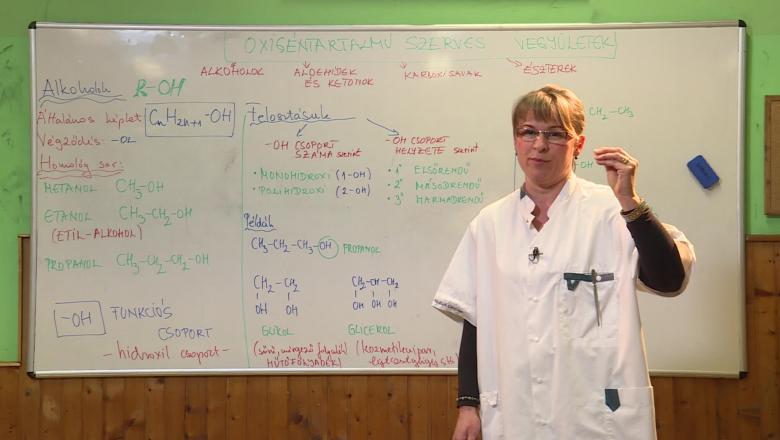 OXIGÉNTARTALMÚ SZERVES VEGYÜLETEK
ALKOHOLOK
ALDEHIDEK
ÉS KETONOK
KARBOXISAVAK
ÉSZTEREK
Alkoholok R-OH
Általános képlet: CnH2n+1-OH
Végződés: -OL
Homológ sor:
METANOL CH3-OH
ETANOL CH3-CH2-OH
(ETIL-ALKOHOL)
PROPANOL CH3-CH2-CH2-OH
-OH FUNKCIÓS
CSOPORT
-hidroxil csoport-
Felosztásuk
-OH CSOPORT
SZÁMA szerint
• MONOHIDROXI (1-OH)
• POLIHIDROXI (2-OH)
-OH CSOPORT
HELYZETE szerint
• 1° ELSŐRENDŰ
• 2° MÁSODRENDŰ
• 3° HARMADRENDŰ
Példák
CH3-CH2-CH3-OH PROPANOL
CH2-CH2
OH OH
GLIKOL
(sűrű, mérgező folyadék)
HŰTŐFOLYADÉK)
CH2-CH-CH2
OH OH OH
GLICEROL
(kozmetikai ipar,
CH2-CH3
-OH